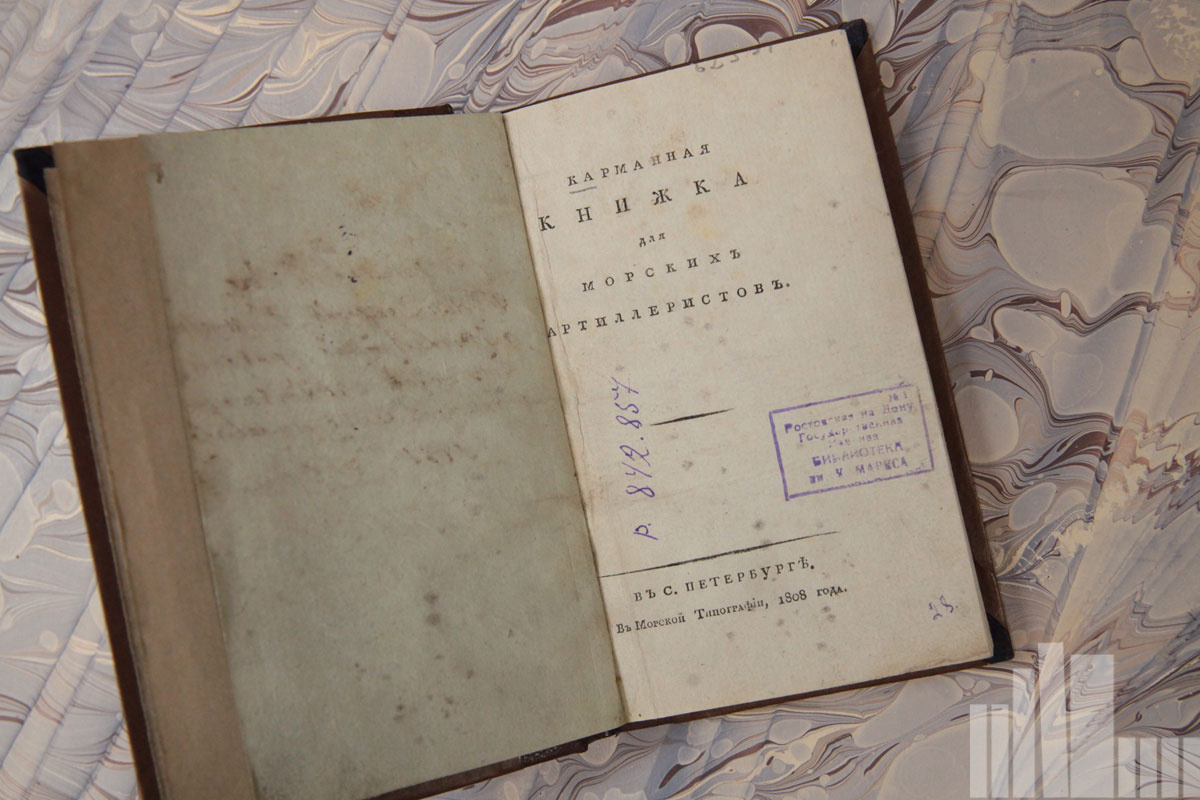 КАРМАННАЯ
КНИЖКА
для
МОРСКИХЪ
АРТИЛЛЕРИСТОВЪ.
р. 842.857
№ 1
Ростовская на Дону
Государственная
БИБЛИОТЕКА
МАРКСА
ВЪ С. ПЕТЕРБУРГѢ.
Въ Морской Типографіи, 1808 года.
28.